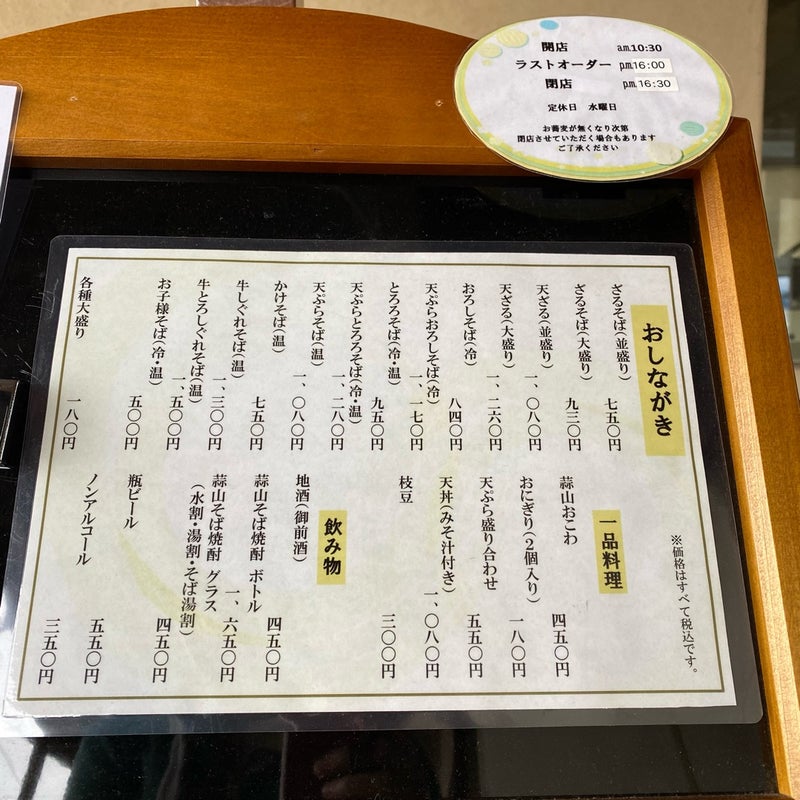 開店 a.m.10:30
ラストオーダー p.m.16:00
閉店 p.m.16:30
定休日 水曜日
お蕎麦が無くなり次第
閉店させていただく場合もあります
ご了承ください
おしながき
ざるそば(並盛り) 七五〇円
ざるそば(大盛り) 九三〇円
天ざる(並盛り) 一、〇八〇円
天ざる(大盛り) 一、二六〇円
おろしそば(冷) 八四〇円
天ぷらおろしそば(冷) 一、一七〇円
とろろそば(冷・温) 九五〇円
天ぷらとろろそば(冷・温) 一、二八〇円
天ぷらそば(温) 一、〇八〇円
かけそば(温) 七五〇円
牛しぐれそば(温) 一、三〇〇円
牛とろしぐれそば(温) 一、五〇〇円
お子様そば(冷・温) 五〇〇円
各種大盛り 一八〇円
※価格はすべて税込です。
一品料理
蒜山おこわ 四五〇円
おにぎり(2個入り) 一八〇円
天ぷら盛り合わせ 五五〇円
天丼(みそ汁付き) 一、〇八〇円
枝豆 三〇〇円
飲み物
地酒(御前酒) 四五〇円
蒜山そば焼酎 ボトル 一、六五〇円
蒜山そば焼酎 グラス
(水割・湯割・そば湯割) 四五〇円
瓶ビール 五五〇円
ノンアルコール 三五〇円